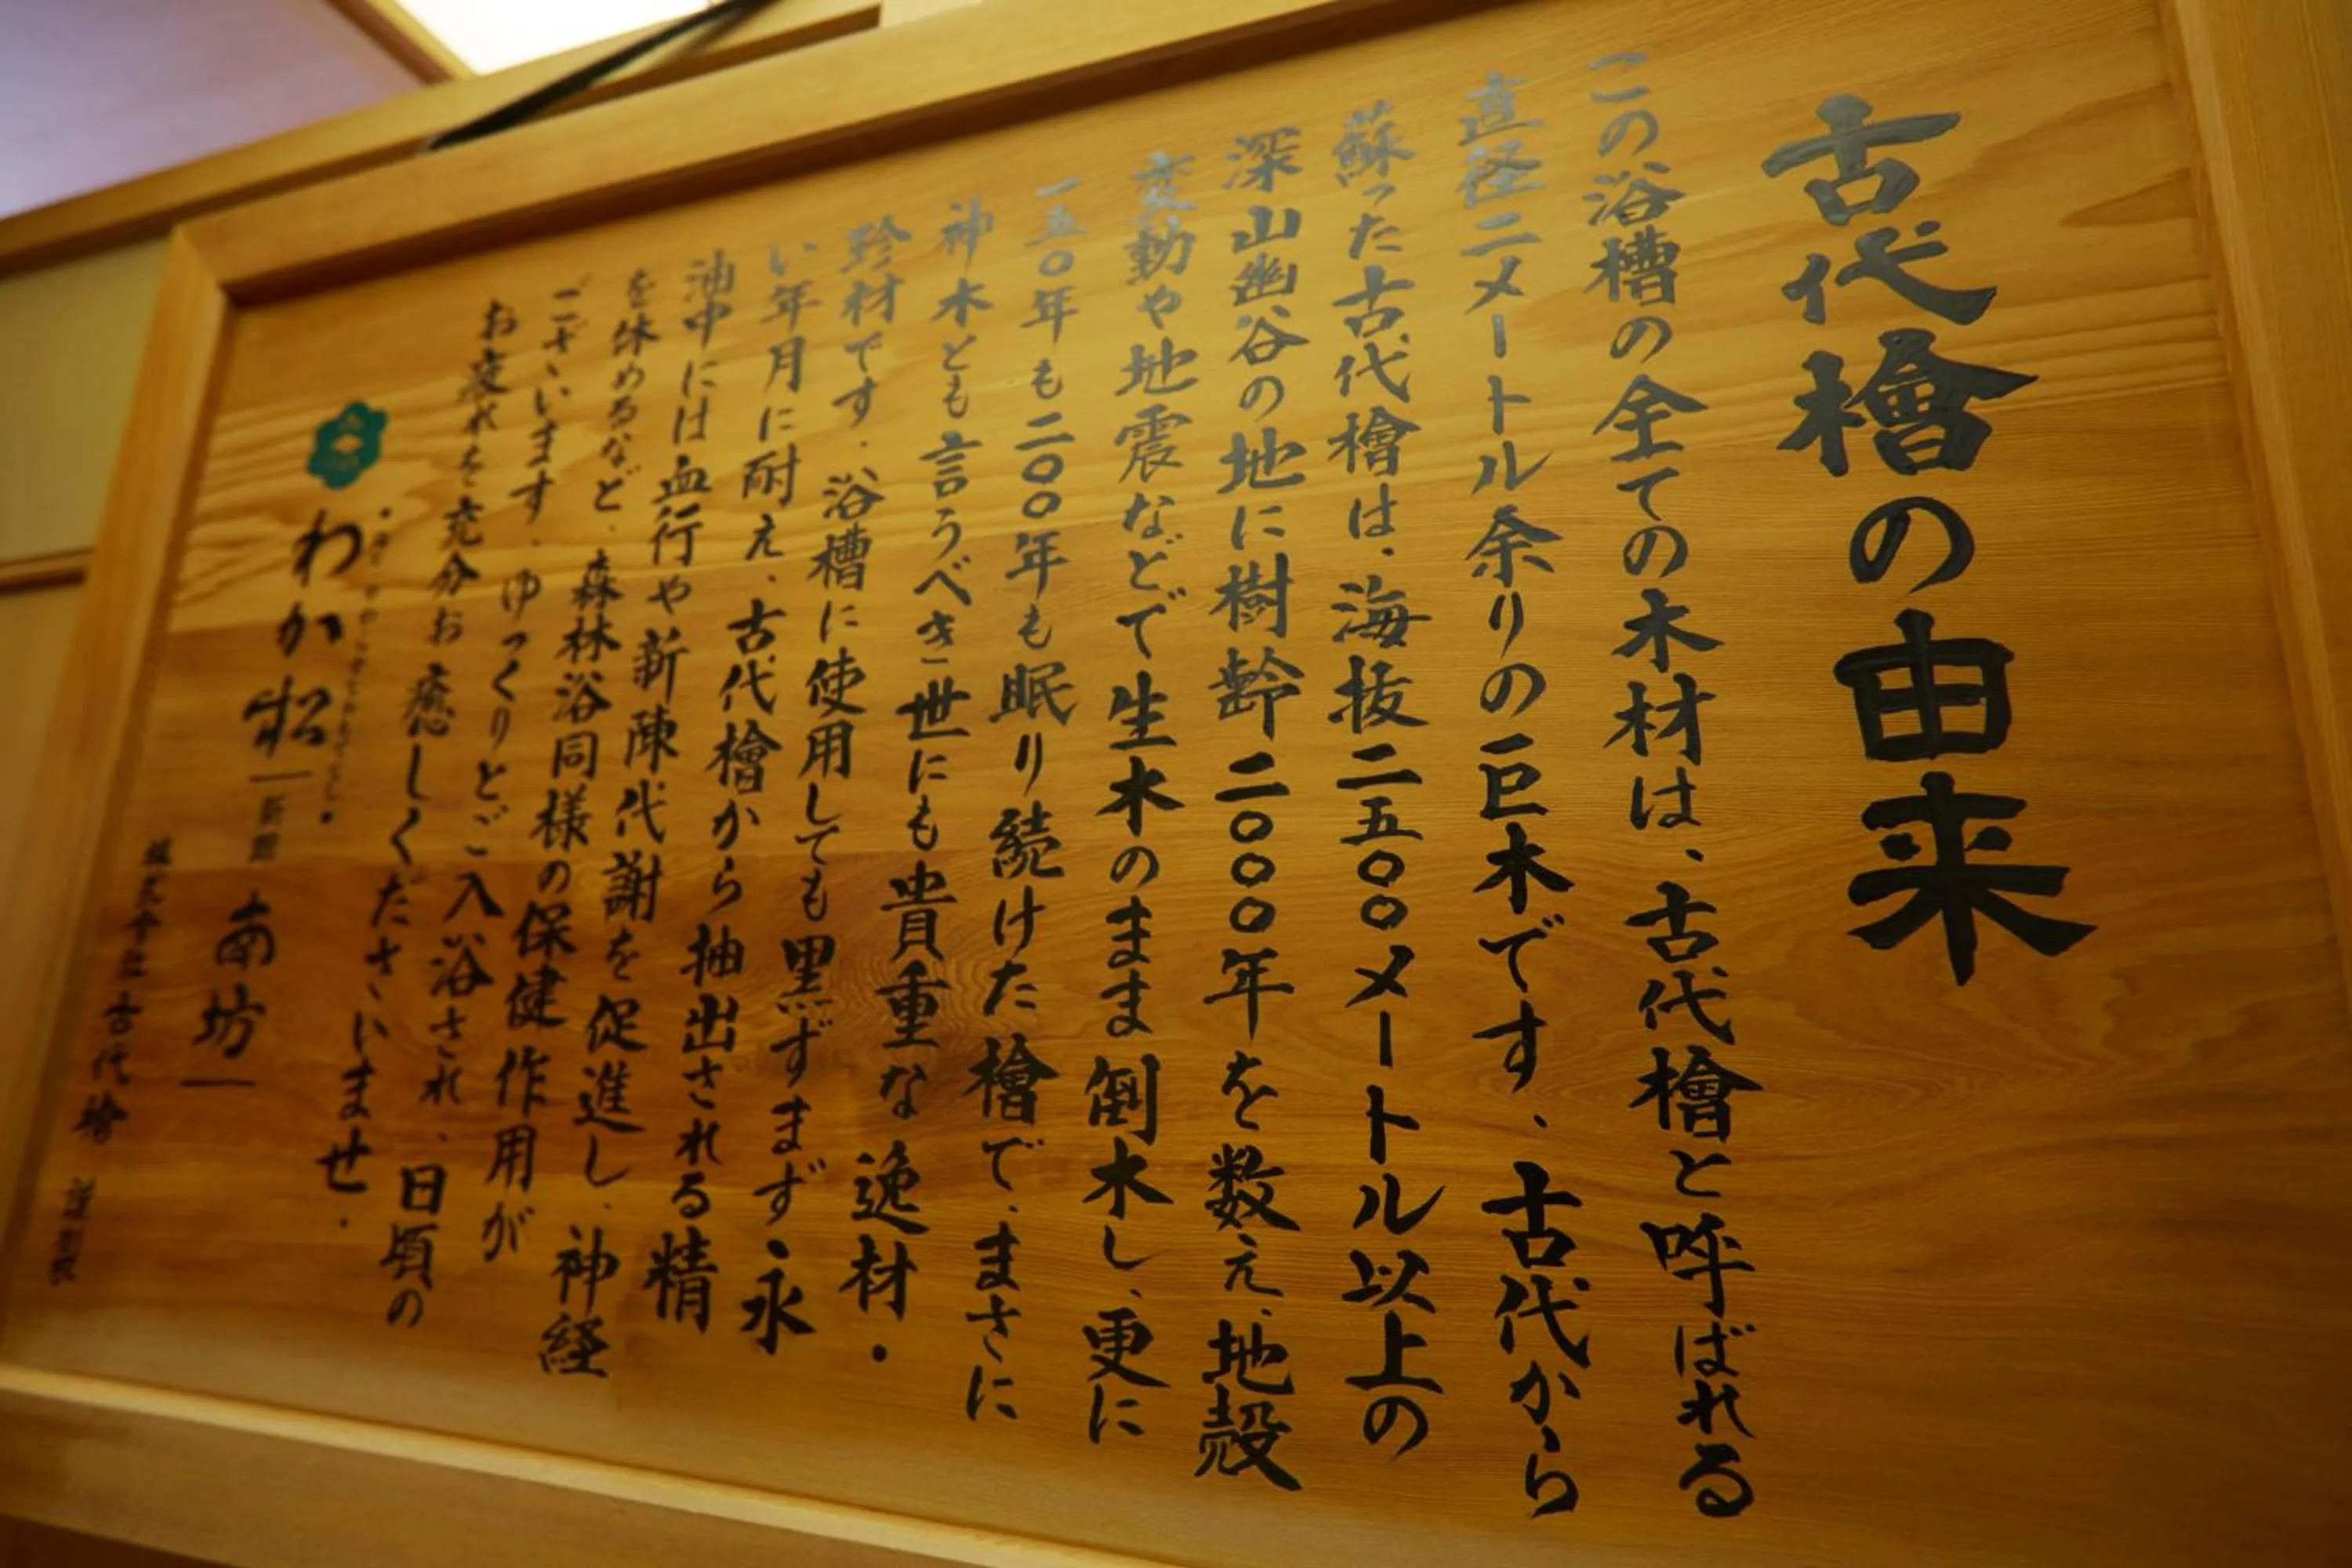 古代檜の由来
この浴槽の全ての木材は、古代檜と呼ばれる
直径二メートル余りの巨木です、古代から
蘇った古代檜は、海抜二五〇〇メートル以上の
深山幽谷の地に樹齢二〇〇〇年を数え、地殻
変動や地震などで生木のまま倒木し、更に
一五〇年も二〇〇年も眠り続けた檜で、まさに
神木とも言うべき世にも貴重な逸材・
珍材です、浴槽に使用しても黒ずまず永
い年月に耐え、古代檜から抽出される精
油中には血行や新陳代謝を促進し、神経
を休めるなど、森林浴同様の保健作用が
ございます、ゆっくりとご入浴され、日頃の
お疲れを充分お癒しくださいませ・
わか松
南坊
株式会社古代檜 謹製